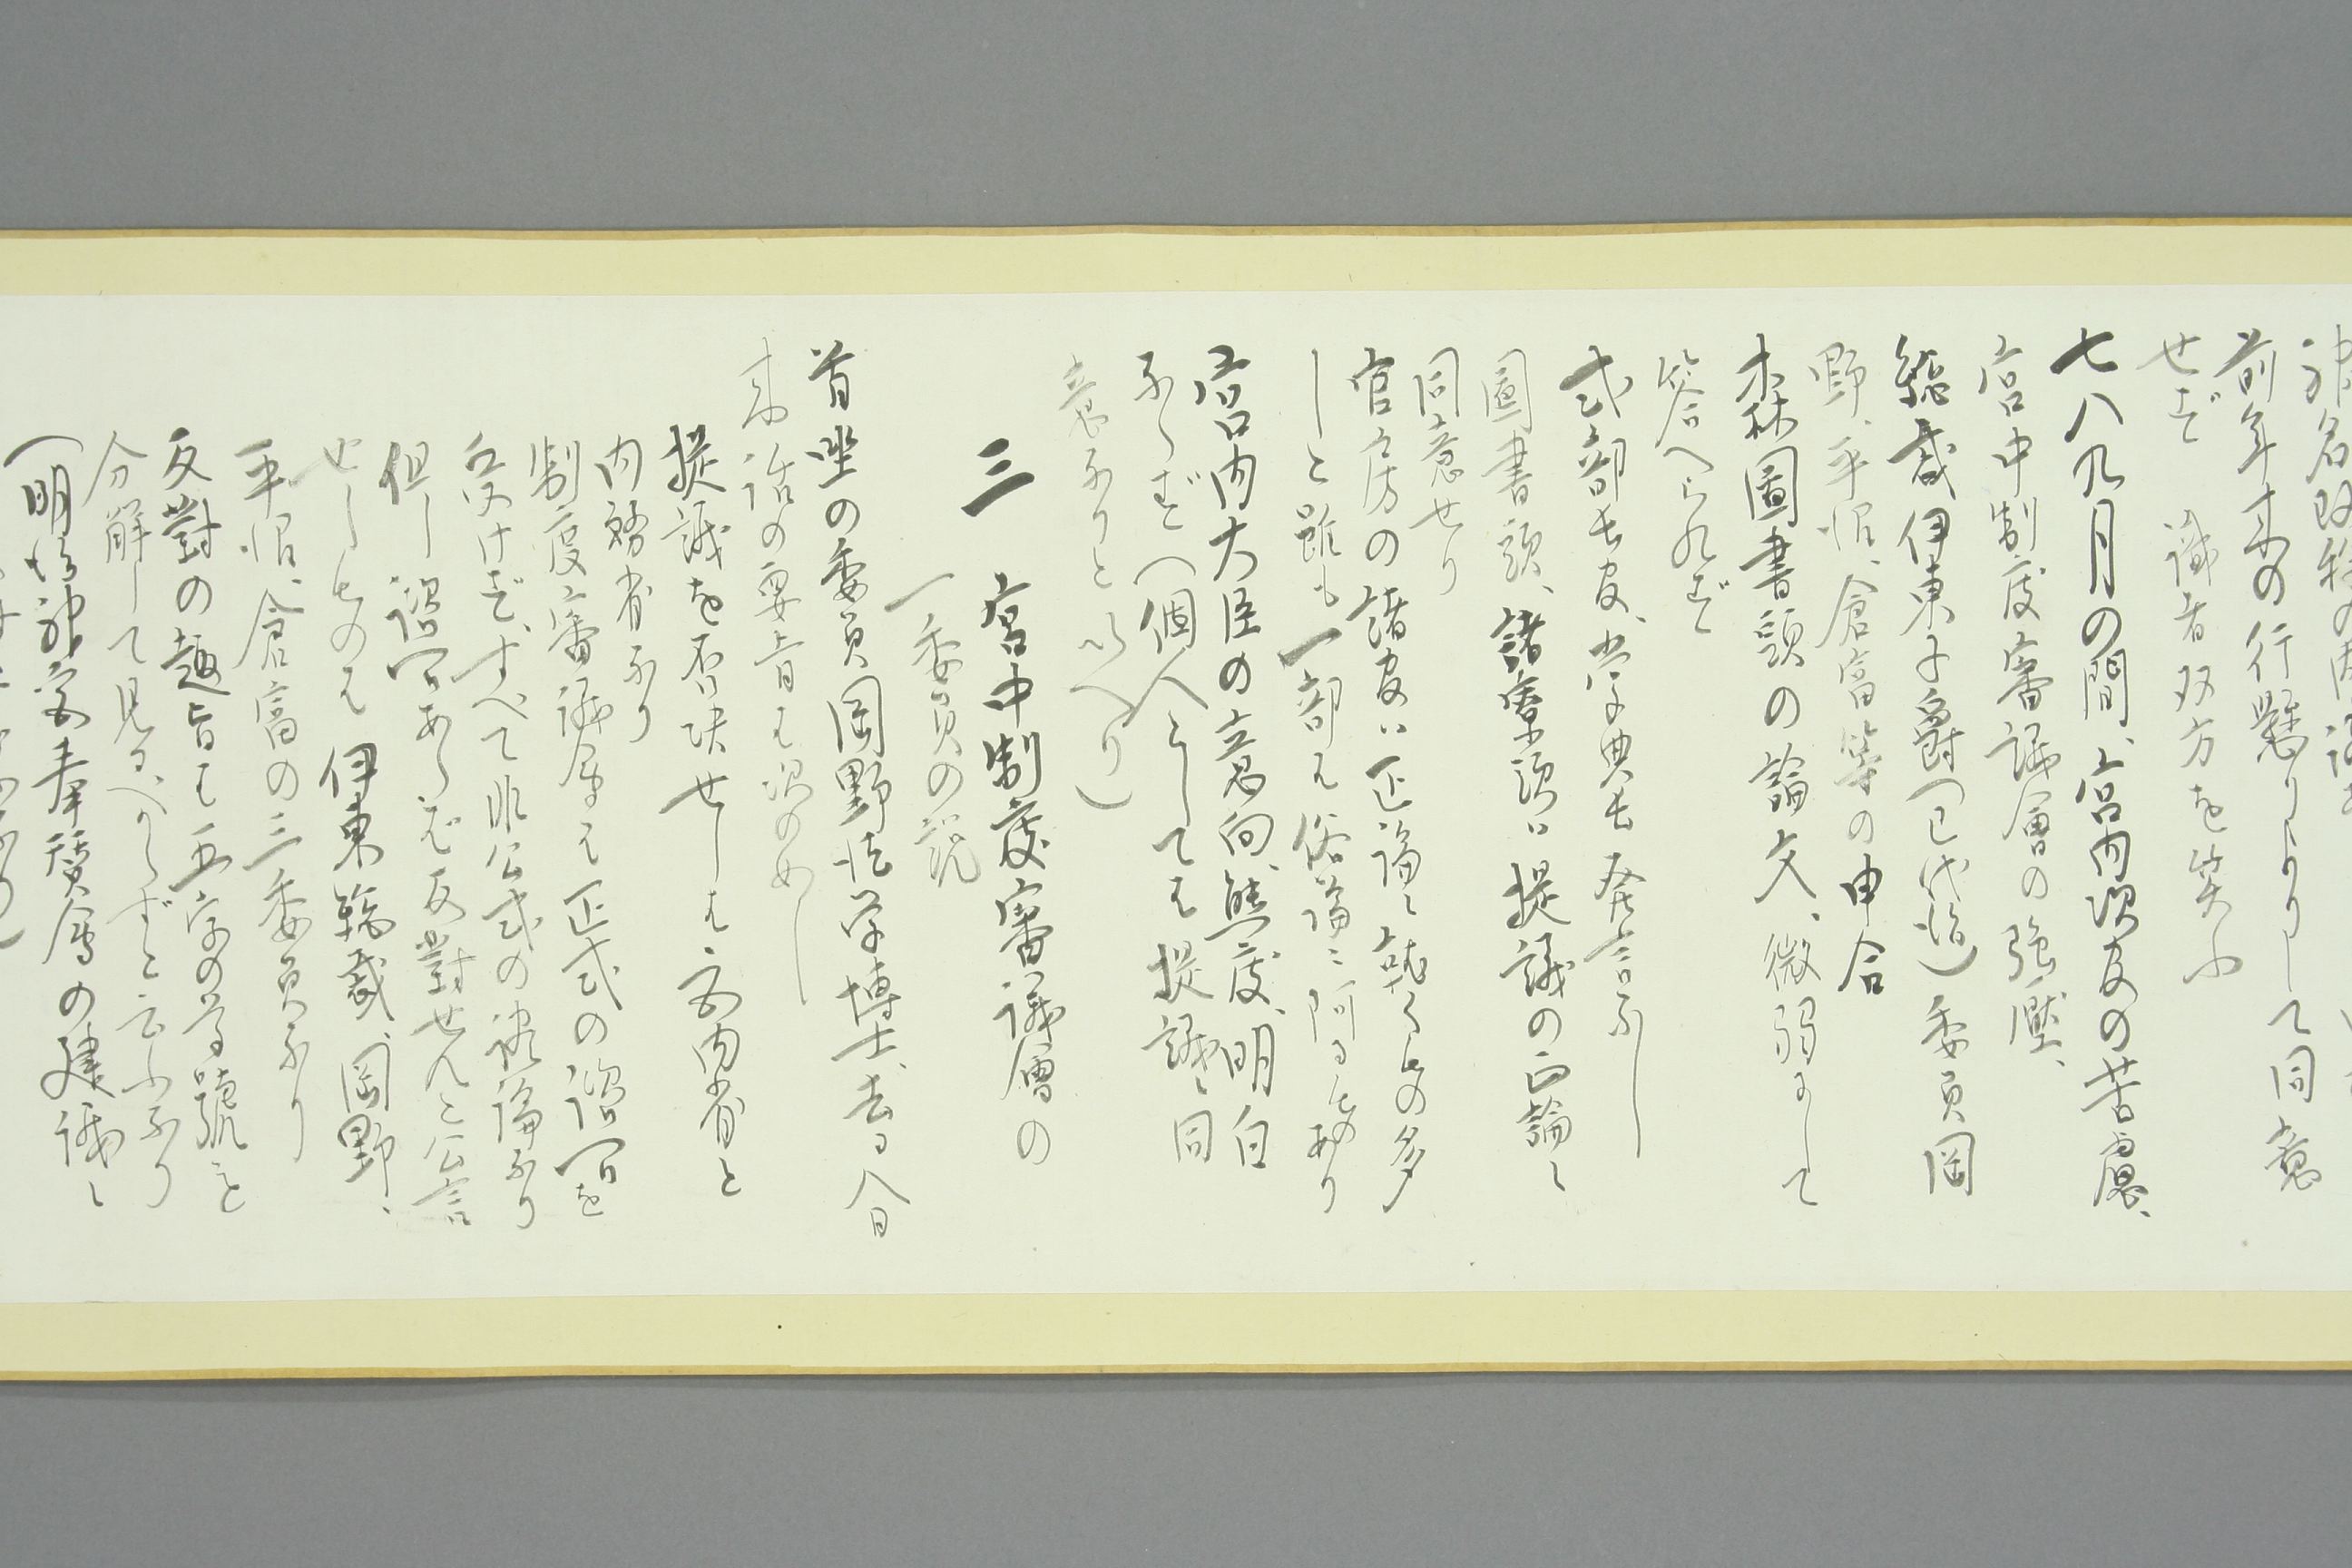 神名改称の内議
前年来の行懸りよりして同意
せず 識者双方を笑ふ
七八九月の間、宮内次官の苦慮、
宮中制度審議會の強壓、
總裁伊東子爵(巳代治)委員岡
野、平沼、倉富等の申合
森圖書頭の論文、微弱にして
答へられず
式部長官、掌典長発言なし
圖書頭、諸寮頭は提議の正論に
同意せり
官房の諸官は正論に就くもの多
しと雖も一部は俗論に阿るものあり
宮内大臣の意向、態度、明白
ならず(個人としては提議に同
意なりといへり)
三 宮中制度審議會の
一委員の説
首坐の委員岡野法学博士、去る八日
来 話の要旨は次の如し
提議を否決せしは、宮内省と
内務省なり
制度審議會は正式の諮問を
受けず、すべて非公式の議論なり
但し 諮問あらば反對せんと公言
せしものは 伊東総裁、岡野、
平沼、倉富の三委員なり
反對の趣旨は五字の尊號を
分解して見るべからずと云ふなり
(明治神宮奉賛會の建議に